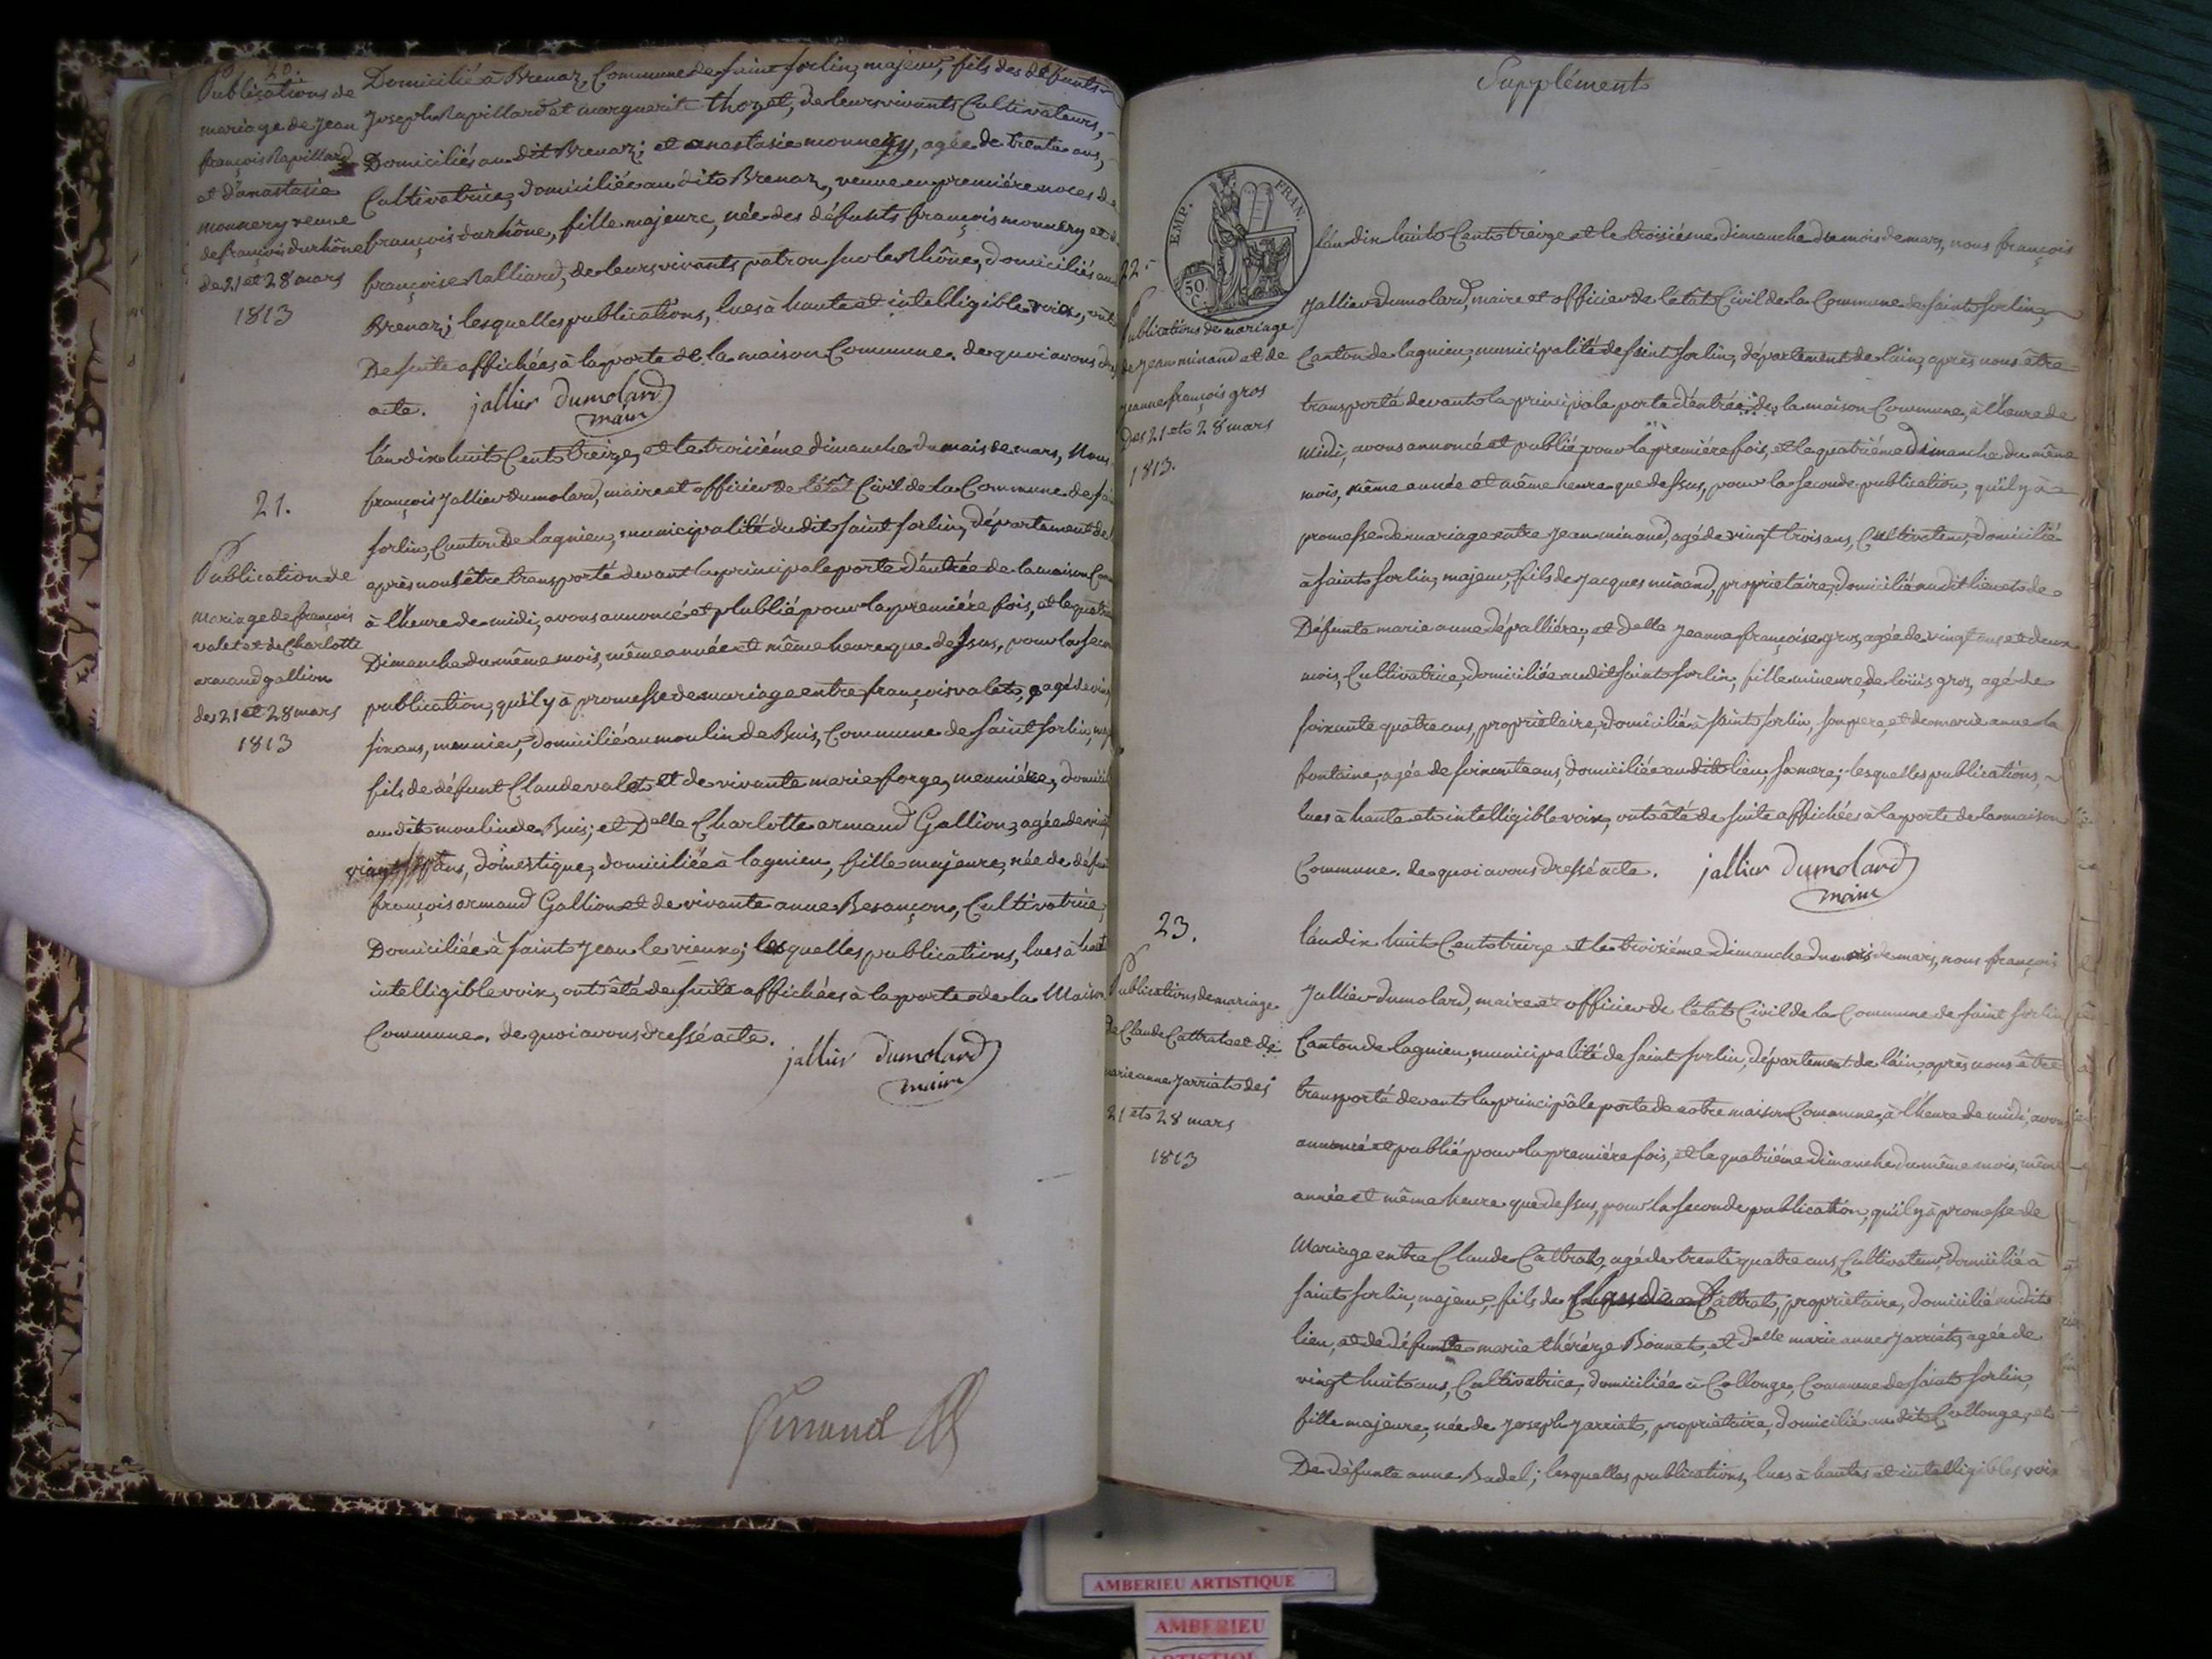 20.
Publications de
mariage de jean
françois Rapillard
et d'anastasie
monnery veuve
de françois durhône
de 21 et 28 mars
1813
Domicilié à Brenaz, Commune de saint sorlin, majeur, fils des défunts
Joseph Rapillard et marguerite thozet, de leurs vivants Cultivateurs,
Domiciliés au dit Brenaz; et anastasie monnery, agée de trente ans,
Cultivatrice, domiciliée au dit Brenaz, veuve en première noces de
françois durhône, fille majeure, née des défunts françois monnery et
françoise Ralliard, de leurs vivants patron sur le Rhône, domiciliés au
Brenaz; lesquelles publications, lues à haute et intelligible voix, ont
De suite affichées à la porte de la maison Commune. de quoi avons
acte. jallier dumolard
maire
21.
Publication de
Mariage de françois
valet et de Charlotte
armand gallion
des 21 et 28 mars
1813
l'an dix huit Cent treize, et le troisième dimanche du mois de mars, Nous
françois Jallier dumolard, maire et officier de l'état Civil de la Commune de
sorlin, Canton de Lagnieu, municipalité du dit saint sorlin, département de
après nous être transporté devant la principale porte d'entrée de la maison
à l'heure de midi, avons annoncé et plublié pour la première fois, et le
Dimanche du même mois, même année et même heure que dessus, pour la
publication, qu'il y à promesse de mariage entre françois valet, agé de
six ans, meunier, domicilié au moulin de Buis, Commune de saint sorlin,
fils de défunt Claude valet et de vivante marie forge, meunière,
au dit moulin de Buis; et Delle Charlotte armand Gallion, agée de
ans, domestique, domiciliée à lagnieu, fille majeure, née de
françois armand Gallion et de vivante anne Besançon, Cultivatrice,
Domiciliée à saint Jean le vieux; lesquelles publications, lues à
intelligible voix, ont été de suite affichées à la porte de la Maison
Commune. de quoi avons dressé acte.
jallier dumolard
maire
Supplément
EMP. FRAN.
50 C.
22.
Publications de mariage
de Jean minand et de
jeanne françois gros
des 21 et 28 mars
1813.
l'an dix huit Cent treize et le troisième dimanche du mois de mars, nous françois
Jallier dumolard, maire et officier de l'état Civil de la Commune de saint sorlin,
Canton de lagnieu, municipalité de saint sorlin, département de l'ain, après nous être
transporté devant la principale porte d'entrée de la maison Commune, à l'heure de
midi, avons annoncé et publié pour la première fois, et le quatrième Dimanche du même
mois, même année et même heure que dessus, pour la seconde publication, qu'il y à
promesse de mariage entre Jean minand, agé de vingt trois ans, Cultivateur, domicilié
à saint sorlin, majeur, fils de Jacques minand, propriétaire, domicilié au dit lieu et de
Défunte marie anne dépallière; et Delle Jeanne françoise gros, agée de vingt ans et deux
mois, Cultivatrice, domiciliée au dit saint sorlin, fille mineure, de loüis gros, agé de
soixante quatre ans, propriétaire, domicilié à saint sorlin, son pere, et de marie anne la
fontaine, agée de soixante ans, domiciliée au dit lieu, sa mere; lesquelles publications,
lues à haute et intelligible voix, ont été de suite affichées à la porte de la maison
Commune. de quoi avons dressé acte. jallier dumolard
maire
23.
Publications de mariage
de Claude Cattrat et de
marie anne Jarriat des
21 et 28 mars
1813
l'an dix huit Cent treize et le troisième dimanche du mois de mars, nous françois
Jallier dumolard, maire et officier de l'état Civil de la Commune de saint sorlin
Canton de lagnieu, municipalité de saint sorlin, département de l'ain, après nous être
transporté devant la principale porte de notre maison Commune, à l'heure de midi, avons
annoncé et publié pour la première fois, et le quatrième dimanche du même mois, même
année et même heure que dessus, pour la seconde publication, qu'il y à promesse de
Mariage entre Claude Cattrat, agé de trente quatre ans, Cultivateur, domicilié à
saint sorlin, majeur, fils de Claude Cattrat, propriétaire, domicilié au dit
lieu, et de défunte marie thérèze Bonnet, et delle marie anne Jarriat, agée de
vingt huit ans, Cultivatrice, domiciliée à Collonge, Commune de saint sorlin,
fille majeure, née de Joseph Jarriat, propriétaire, domicilié au dit Collonge, et
De défunte anne Badel; lesquelles publications, lues à haute et intelligible voix
AMBERIEU ARTISTIQUE
AMBERIEU
ARTISTIQUE